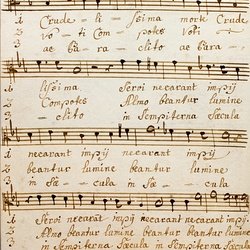 1 Crude - li - ssima morte Crude
2 vo - ti Com - potes voti
3 ac para - clito ac para -
1 lissima Seroi necarant impij
2 Compotes Almo beantur lumine
3 - clito in Sempiterna Sæcula
1 necarant impij necarant impij
2 beantur lumine beantur lumine
3 in Sæ - cula in Sæ - cula
1 Seroi necarãt impij necarant impij necarant impij
2 Almo beantur lumine beantur lumine beantur lumine
3 in Sempiterna Sæcula in Sempiterna Sæcula